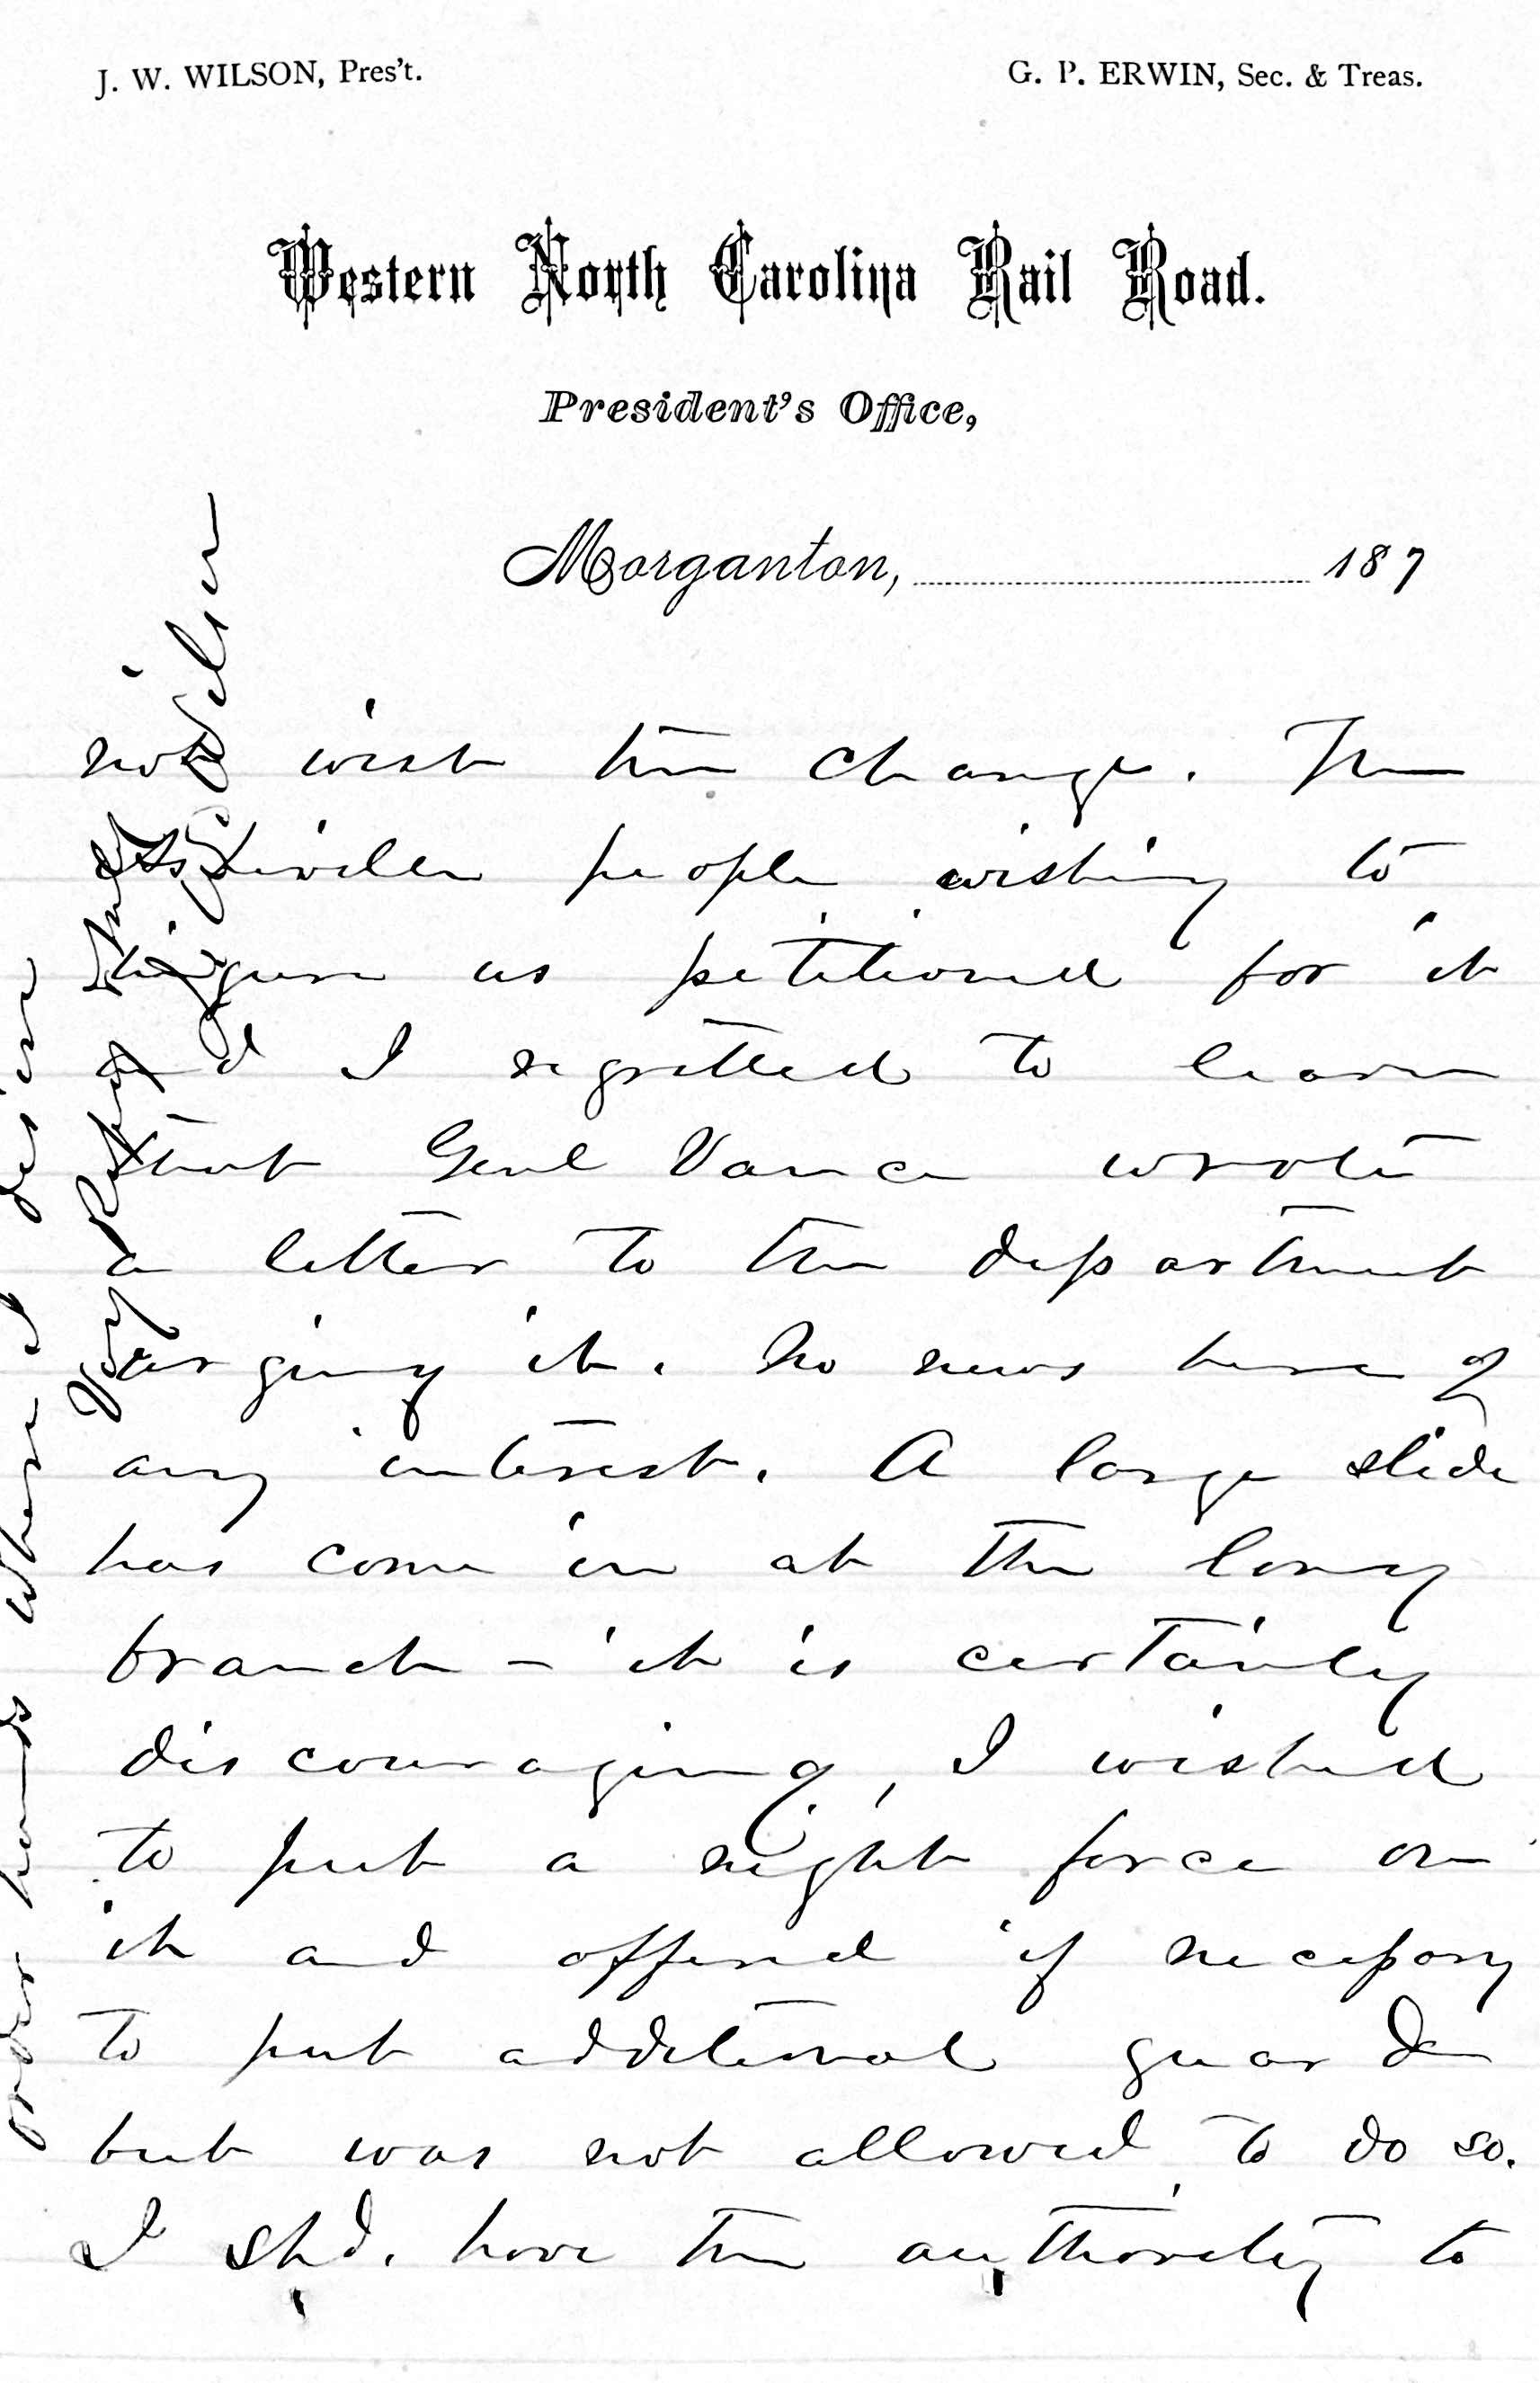 J. W. WILSON, Pres't.
G. P. ERWIN, Sec. & Treas.
Western North Carolina Rail Road.
President's Office,
Morganton, 187
not wish the change. The
people wishing to
us petitioned for it
and I regretted to learn
that Genl Vance wrote
a letter to the department
urging it. No news here of
any interest. A large slide
has come in at the long
branch - it is certainly
discouraging, I wished
to put a night force on
it and offered if necessary
to put additional guards
but was not allowed to do so.
I shd. have the authority to
order hands where I desire
Very Resply
Wilson